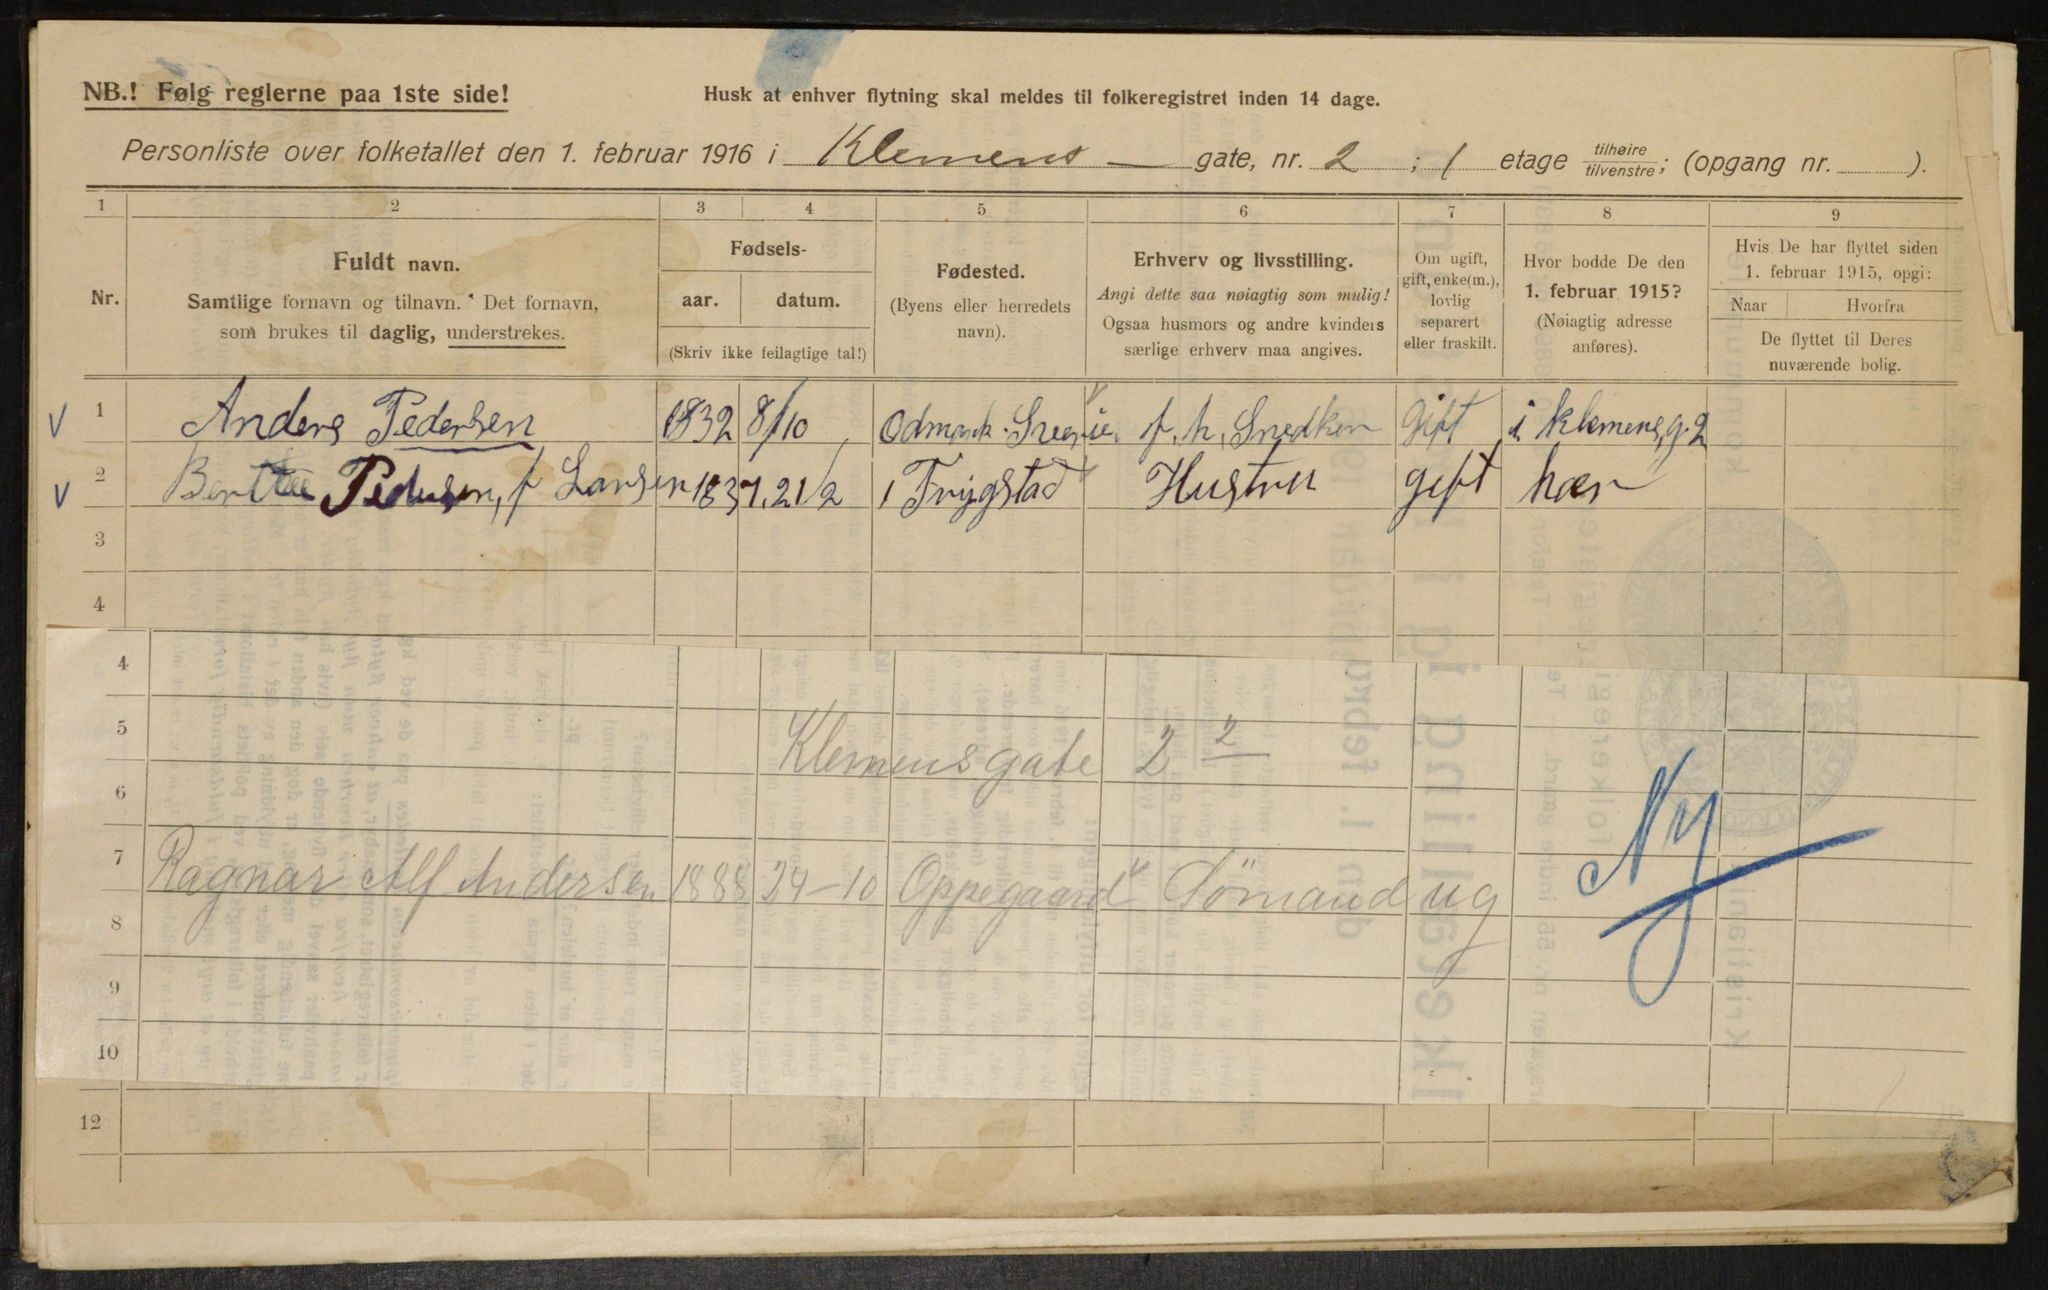 NB.! Følg reglerne paa 1ste side!
Husk at enhver flytning skal meldes til folkeregistret inden 14 dage.
Personliste over folketallet den 1. februar 1916 i Klemens — gate, nr. 2 ; 1 etage tilhøire / tilvenstre ; (opgang nr. ).
1 2 3 4 5 6 7 8 9
Nr.
Fuldt navn.
Samtlige fornavn og tilnavn. Det fornavn,
som brukes til daglig, understrekes.
Fødsels-
aar. datum.
(Skriv ikke feilagtige tal!)
Fødested.
(Byens eller herredets
navn).
Erhverv og livsstilling.
Angi dette saa nøiagtig som mulig!
Ogsaa husmors og andre kvinders
særlige erhverv maa angives.
Om ugift,
gift, enke(m.),
lovlig
separert
eller fraskilt.
Hvor bodde De den
1. februar 1915?
(Nøiagtig adresse
anføres).
Hvis De har flyttet siden
1. februar 1915, opgi:
Naar Hvorfra
De flyttet til Deres
nuværende bolig.
V 1 Anders Pedersen 1832 8/10 Odmark f. h. Snedker gift i Klemens.g. 2
V 2 Berthe Pedersen, f Larsen 1837. 21/2 i Trygstad Hustru gift hær
3
4
4
5 Klemensgate 2 2
6
7 Ragnar Alf Andersen 1888 24-10 Oppegaard Sömand ug Ny
8
9
10
12